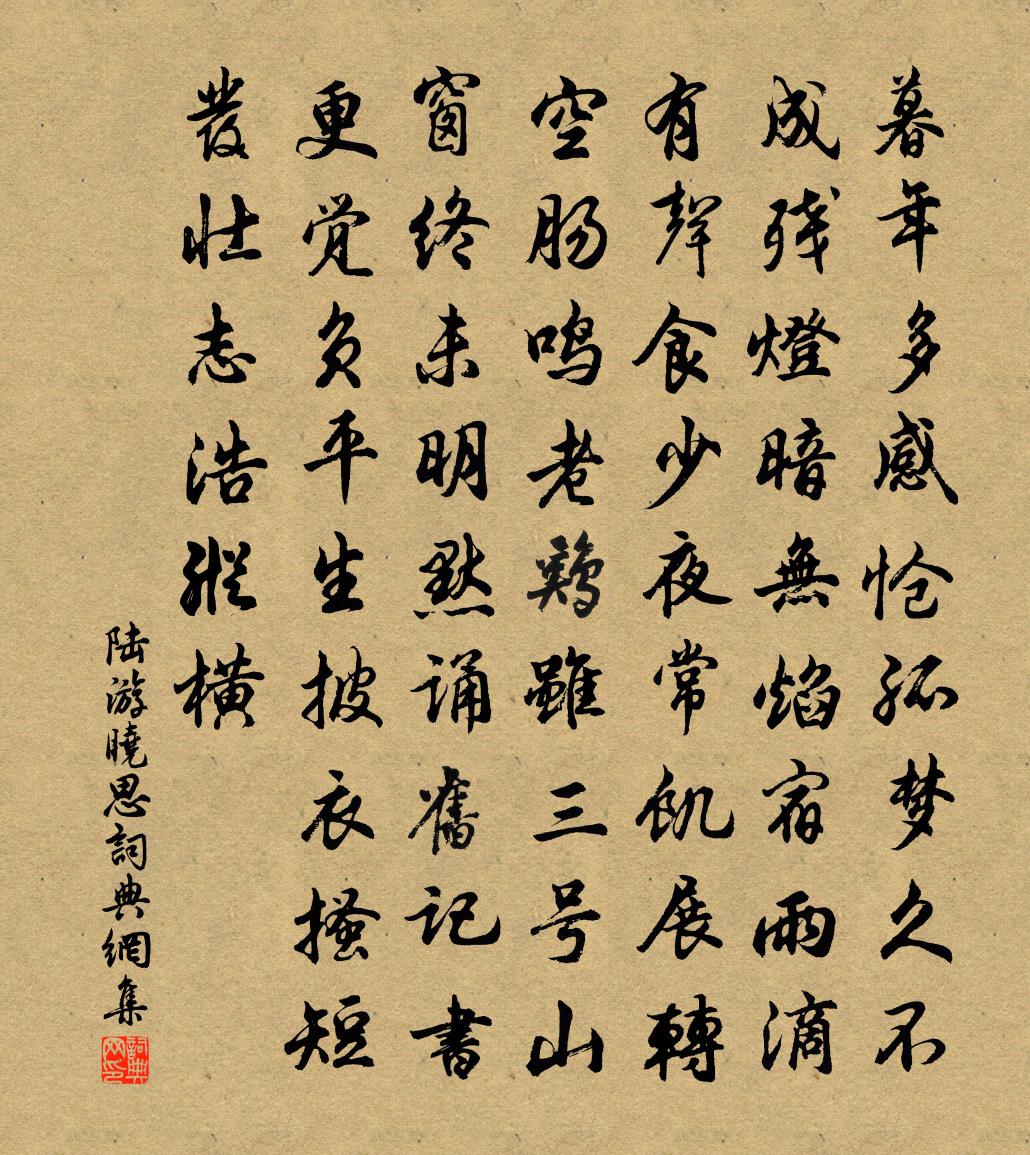 暮年多感怆孤梦久不
成残燈暗無焰宿雨滴
有聲食少夜常飢展轉
空肠鸣老鷄雖三号山
窗终未明默诵舊记書
更觉负平生披衣搔短
發壮志浩縱横
陆游曉思詞典網集
詞典网印